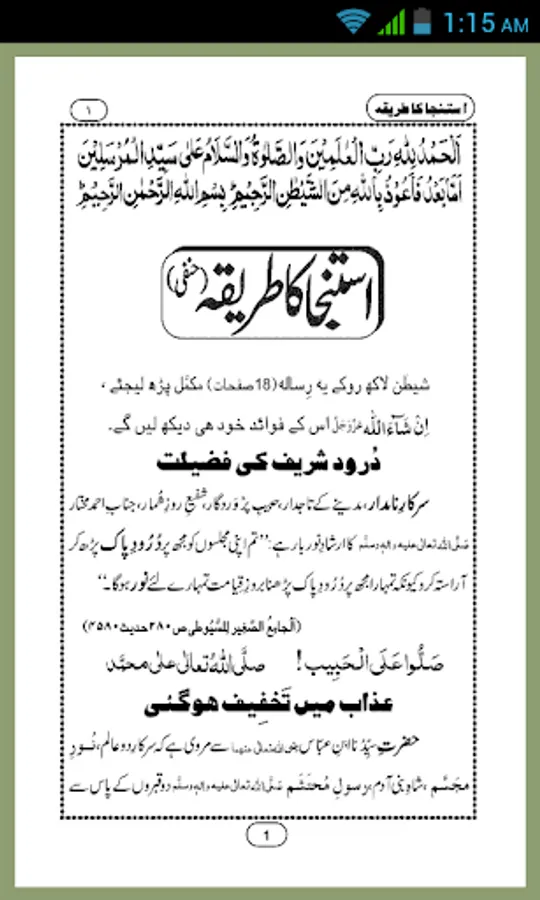 1:15 AM
استنجا کا طریقہ
۱
اَلْحَمْدُ لِلّٰهِ رَبِّ الْعٰلَمِیْنَ وَالصَّلٰوةُ وَالسَّلَامُ عَلٰی سَیِّدِ الْمُرْسَلِیْنَ
اَمَّا بَعْدُ فَاَعُوْذُ بِاللّٰهِ مِنَ الشَّیْطٰنِ الرَّجِیْمِ بِسْمِ اللّٰهِ الرَّحْمٰنِ الرَّحِیْمِ
استنجا کا طریقہ (حنفی)
شیطٰن لاکھ روکے یہ رِسالہ (18 صفحات) مکمَّل پڑھ لیجئے،
اِنْ شَآءَ اللّٰه عَزَّوَجَلَّ اس کے فوائد خود ہی دیکھ لیں گے۔
دُرود شریف کی فضیلت
سرکارِ نامدار، مدینے کے تاجدار، حبیبِ پَرْوَرْدگار، شفیعِ روزِ شمار، جنابِ احمدِ مختار
صَلَّی اللّٰہ تعالٰی علیہ واٰلہٖ وسلَّم کا ارشادِ نور بار ہے: ”تم اپنی مجلسوں کو مجھ پر دُرُودِ پاک پڑھ کر
آراستہ کرو کیونکہ تمہارا مجھ پر دُرُودِ پاک پڑھنا بروزِ قِیامت تمہارے لئے نور ہوگا۔“
(اَلْجامِعُ الصَّغِیر لِلسُّیُوطی ص ۲۸۰ حدیث ۴۵۸۰)
صَلُّوْا عَلَی الْحَبِیْب! صلَّی اللّٰهُ تعالٰی علٰی محمَّد
عذاب میں تَخْفِیف ہوگئی
حضرتِ سیِّدُنا ابنِ عبّاس رضی اللّٰہ تعالٰی عنہما سے مروی ہے کہ سرکارِ دو عالم، نُورِ
مجَسَّم، شاہِ بنی آدم، رسولِ مُحتَشَم صَلَّی اللّٰہ تعالٰی علیہ واٰلہٖ وسلَّم دو قبروں کے پاس سے
1